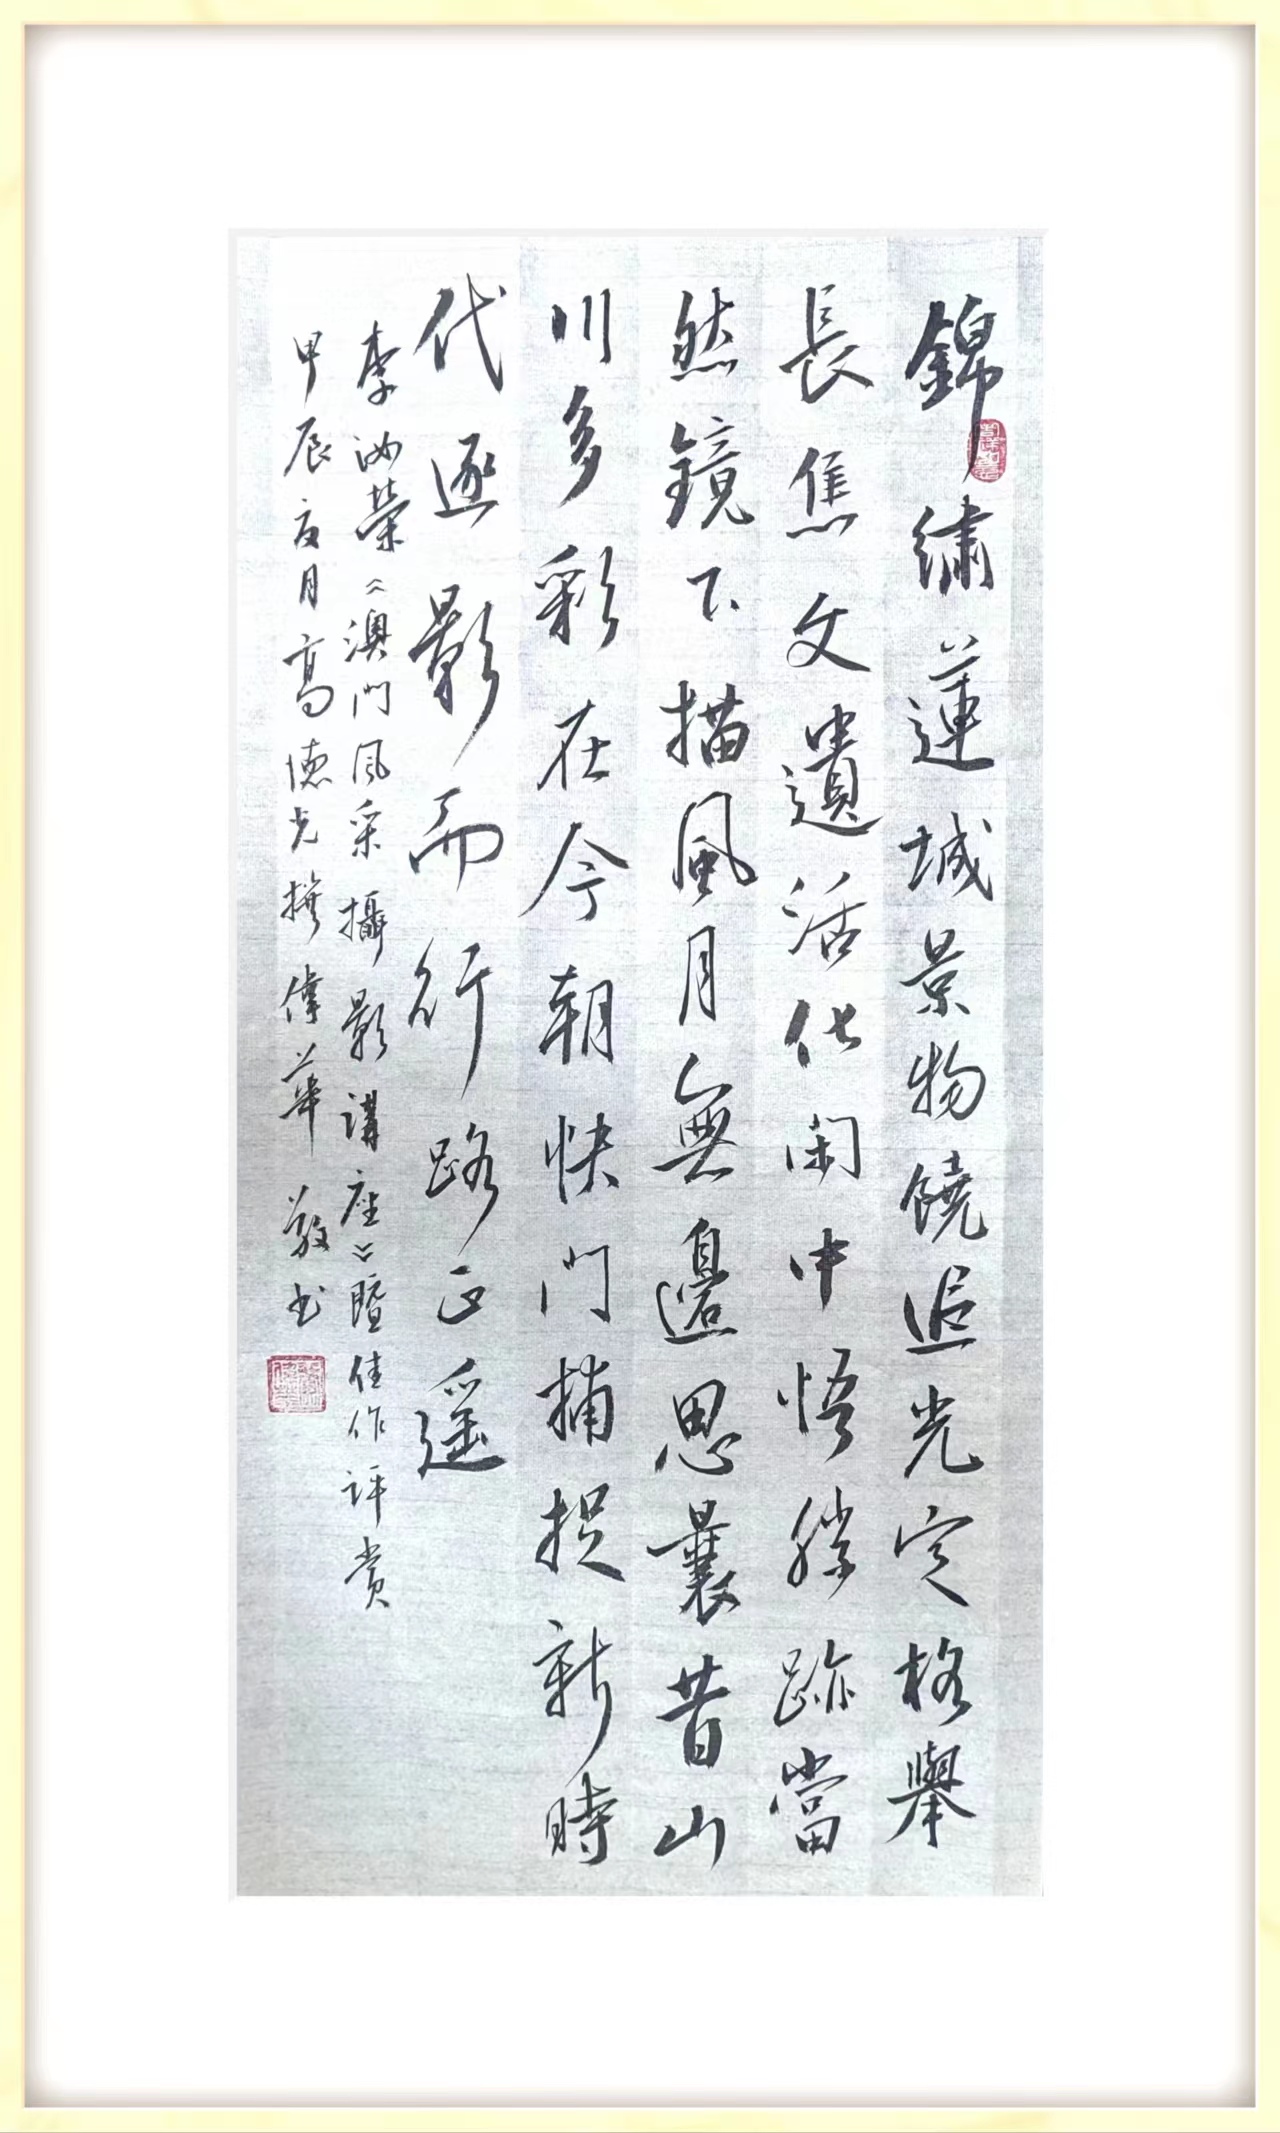 錦繡蓮城景物饒追光定格舉
長焦文遺活化閑中悟勝跡當
然鏡下描風月無邊思曩昔山
川多彩在今朝快門捕捉新時
代逐影而行路正遥
李汝榮《澳門風采攝影講座》暨佳作評賞
甲辰夏月高德光撰偉華敬书